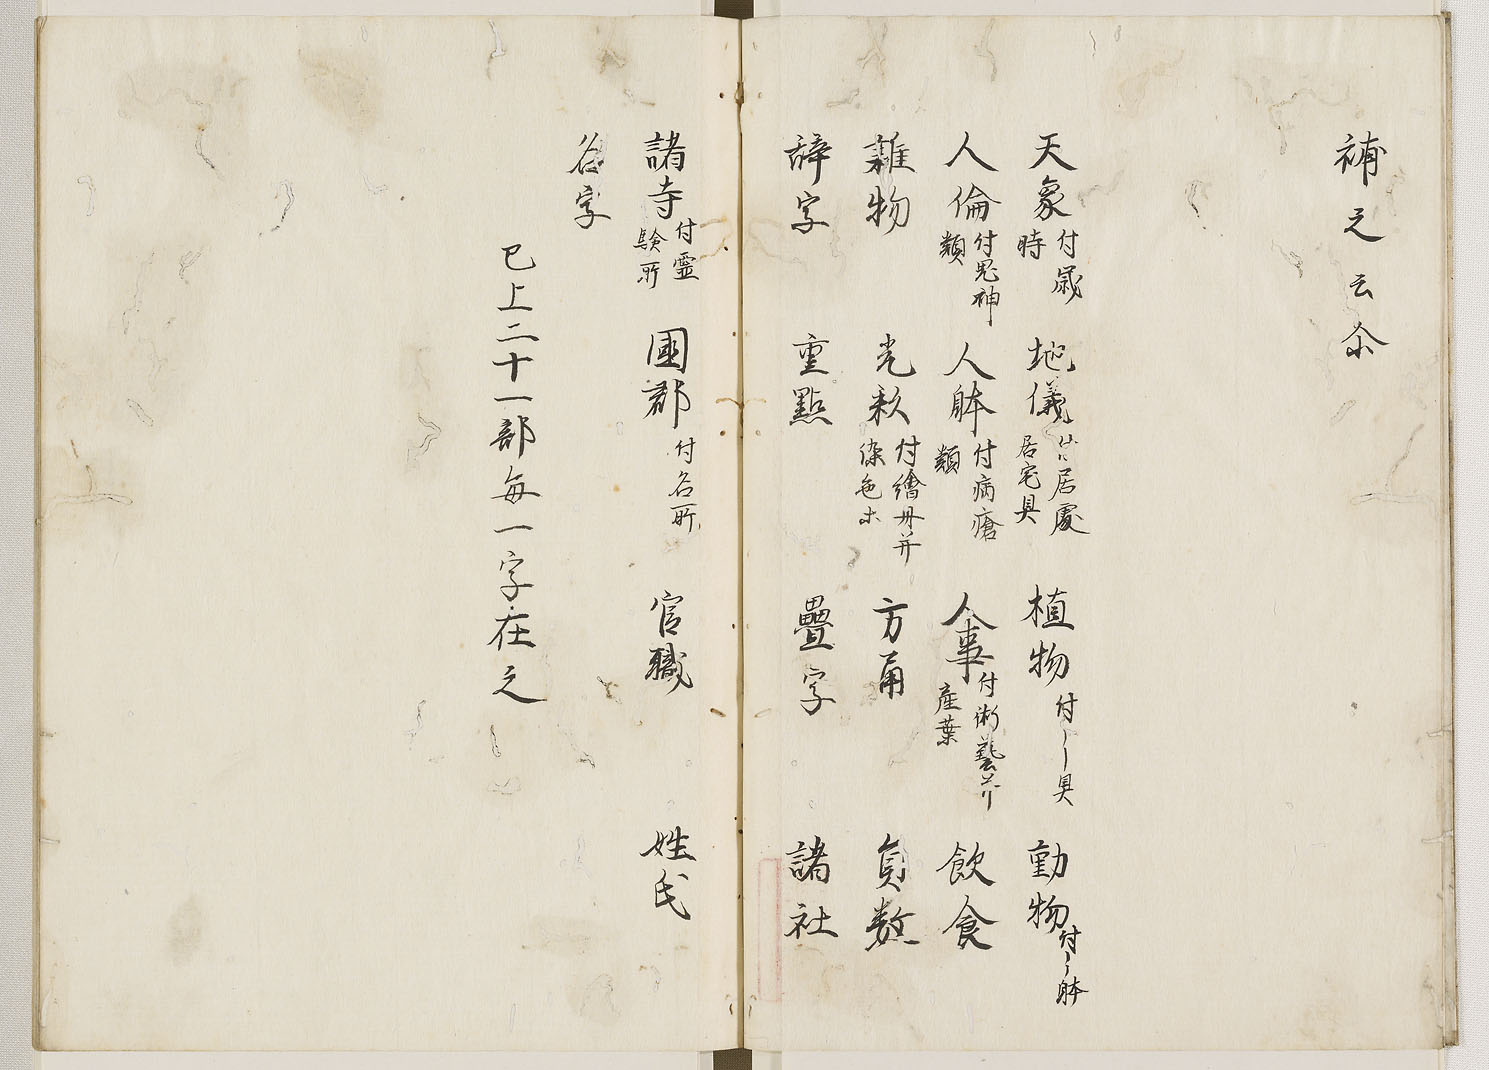 補之云尒
天象付歳時 地儀付居處居宅具 植物付ー具 動物付ー躰
人倫付鬼神類 人躰付病瘡類 人事付術藝并産業 飲食
雜物 光彩付繪丹并染色 方角 員數
辞字 重點 疊字 諸社
諸寺付霊験所 國郡付名所 官職 姓氏
名字
已上二十一部每一字在之